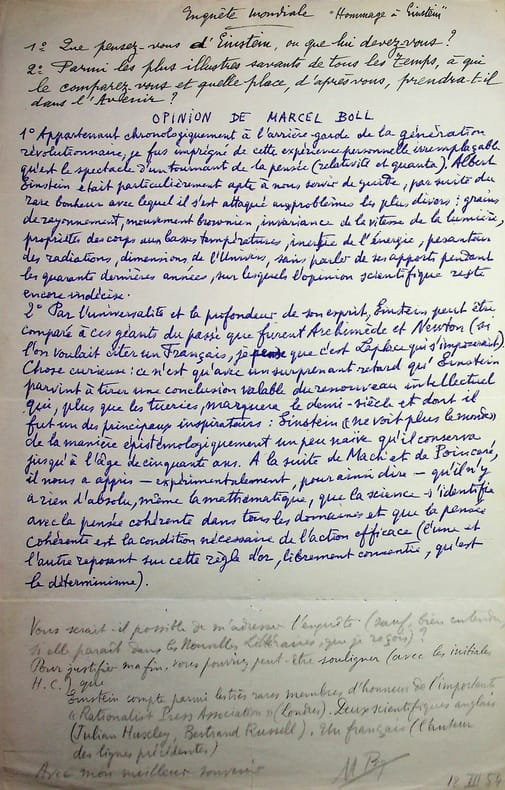 Enquête mondiale "Hommage à Einstein"
1º Que pensez-vous d'Einstein, ou que lui devez-vous ?
2º Parmi les plus illustres savants de tous les temps, à qui
le comparez-vous et quelle place, d'après vous, prendra-t-il
dans l'Avenir ?
OPINION DE MARCEL BOLL
1º Appartenant chronologiquement à l'arrière-garde de la génération
révolutionnaire, je fus imprégné de cette expérience personnelle irremplaçable
qu'est le spectacle d'un tournant de la pensée (relativité et quanta). Albert
Einstein était particulièrement apte à nous servir de guide, par suite du
rare bonheur avec lequel il s'est attaqué aux problèmes les plus divers : grains
de rayonnement, mouvement brownien, invariance de la vitesse de la lumière,
propriétés des corps aux basses températures, inertie de l'énergie, pesanteur
des radiations, dimensions de l'Univers, sans parler de ses apports pendant
les quarante dernières années, sur lesquels l'opinion scientifique reste
encore indécise.
2º Par l'universalité et la profondeur de son esprit, Einstein peut être
comparé à ces géants du passé que furent Archimède et Newton (si
l'on voulait citer un Français, je pense que c'est Laplace qui s'imposerait).
Chose curieuse : ce n'est qu'avec un surprenant retard qu'Einstein
parvint à tirer une conclusion valable du renouveau intellectuel
qui, plus que les tueries, marquera le demi-siècle et dont il
fut un des principaux inspirateurs : Einstein « ne voit plus le monde »
de la manière épistémologiquement un peu naïve qu'il conserva
jusqu'à l'âge de cinquante ans. A la suite de Mach et de Poincaré,
il nous a appris — expérimentalement, pour ainsi dire — qu'il n'y
a rien d'absolu, même la mathématique, que la science s'identifie
avec la pensée cohérente dans tous les domaines et que la pensée
cohérente est la condition nécessaire de l'action efficace (l'une et
l'autre reposant sur cette règle d'or, librement consentie, qu'est
le déterminisme).
Vous serait-il possible de m'adresser l'enquête (sauf, bien entendu,
si elle paraît dans les Nouvelles Littéraires, que je reçois) ?
Pour justifier ma fin, vous pourriez peut-être souligner (avec les initiales
H.C.) que
Einstein compte parmi les très rares membres d'honneur de l'importante
« Rationalist Press Association » (Londres). Deux scientifiques anglais
(Julian Huxley, Bertrand Russell). Un français (l'auteur
des lignes précédentes)
Avec mon meilleur souvenir
12 III 54